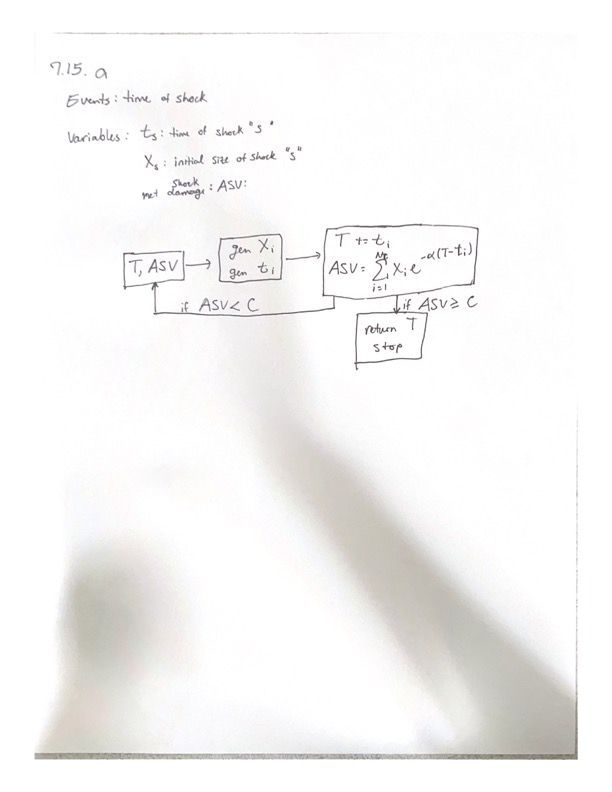 7.15. a
Events: time of shock
Variables: tₛ: time of shock "s"
Xₛ: initial size of shock "s"
net shock damage: ASV:
T, ASV
gen Xᵢ
gen tᵢ
T += tᵢ
ASV = Σ Xᵢ e^-α(T-tᵢ)
i=1
if ASV < C
if ASV ≥ C
return T
stop